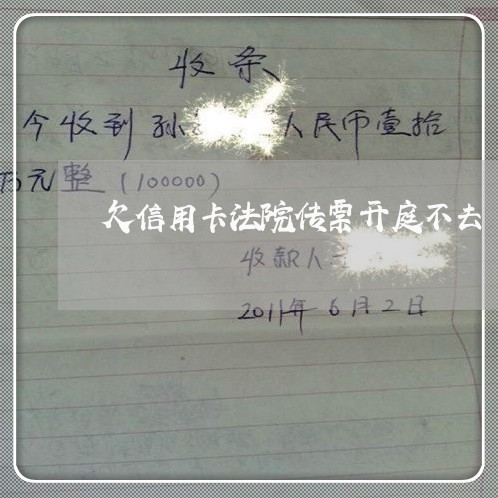 收条
今收到孙 人民币壹拾
万元整(100000)
欠信用卡法院传票开庭不去
收款人
2011年6月2日